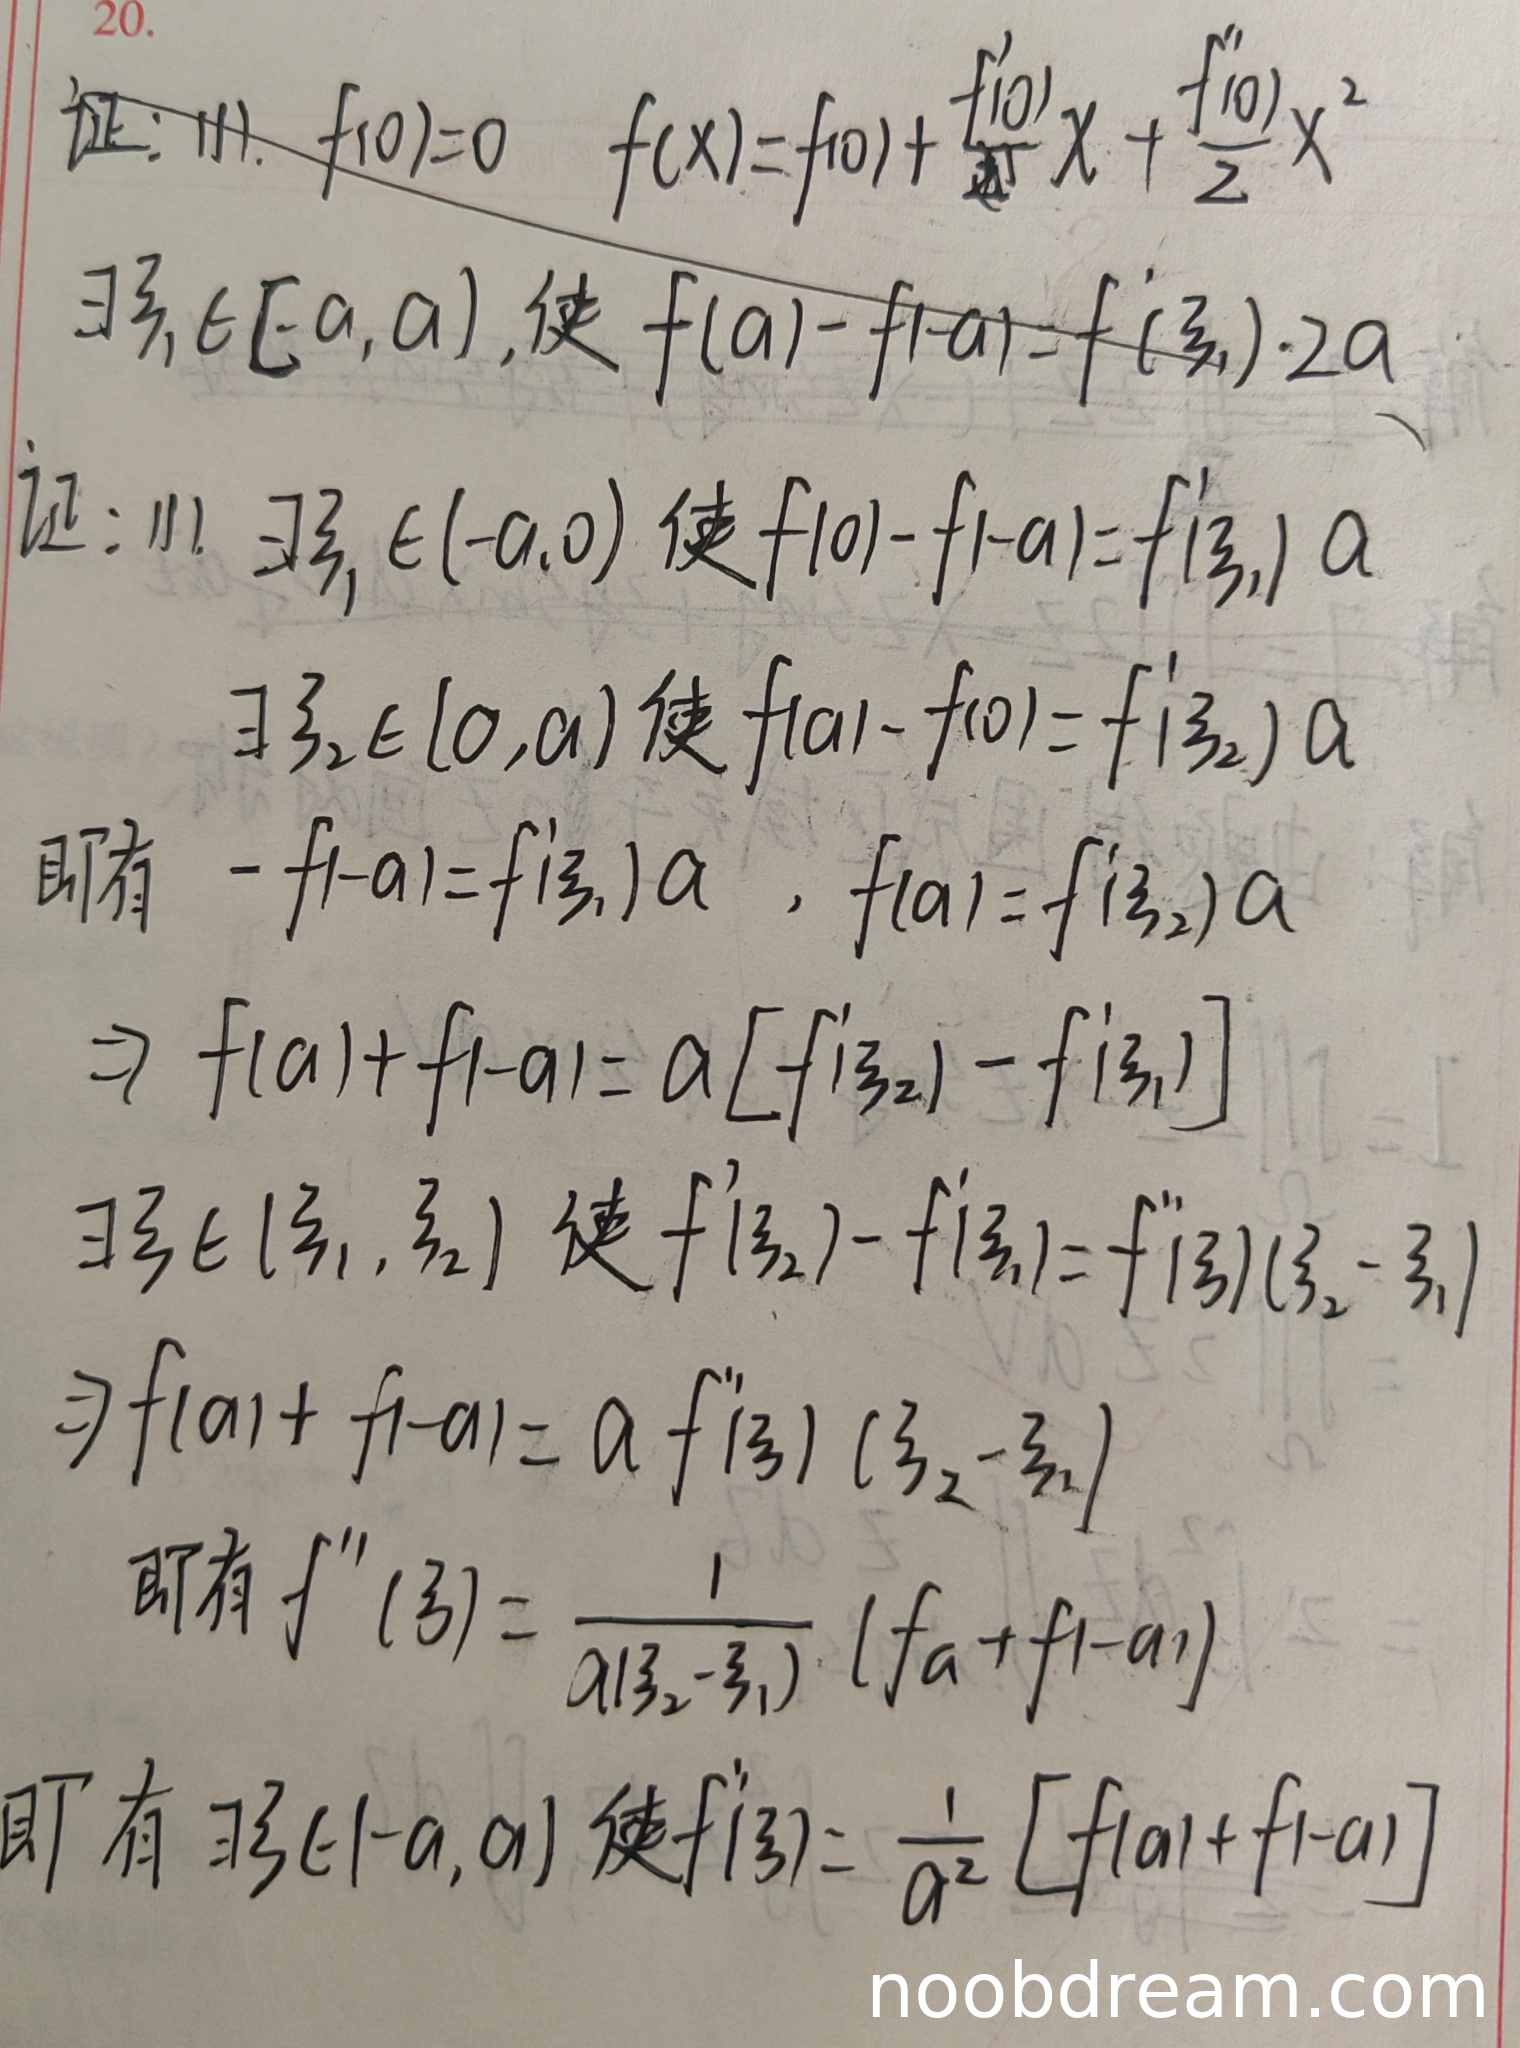 20.
证: (1). f(0)=0 f(x)=f(0)+f'(0)/ x+f''(0)/2 x²
∃ξ₁∈[-a,a),使 f(a)-f(-a)=f'(ξ₁)·2a
证: (1). ∃ξ₁∈(-a,0) 使f(0)-f(-a)=f'(ξ₁)a
∃ξ₂∈(0,a) 使f(a)-f(0)=f'(ξ₂)a
即有 -f(-a)=f'(ξ₁)a , f(a)=f'(ξ₂)a
⇒ f(a)+f(-a)=a[f'(ξ₂)-f'(ξ₁)]
∃ξ∈(ξ₁,ξ₂) 使f'(ξ₂)-f'(ξ₁)=f''(ξ)(ξ₂-ξ₁)
⇒f(a)+f(-a)=a f''(ξ)(ξ₂-ξ₂)
即有 f''(ξ)=1/a(ξ₂-ξ₁) (fa+f(-a))
即有 ∃ξ∈(-a,a) 使f''(ξ)=1/a² [f(a)+f(-a)]
noobdream.com